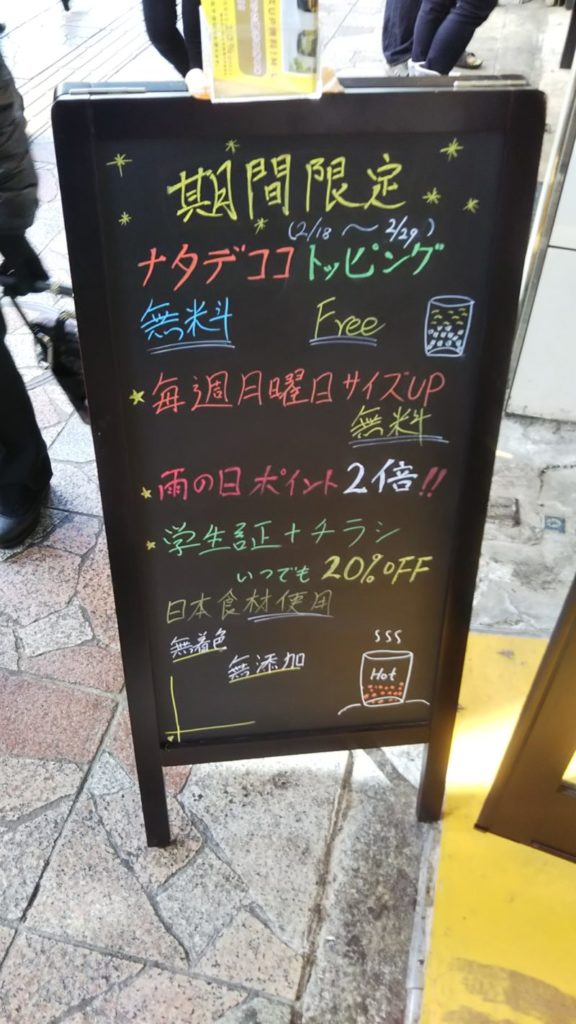 期間限定
(2/18 〜 2/29)
ナタデココ トッピング
無料 Free
毎週月曜日サイズUP
無料
雨の日ポイント2倍!!
学生証+チラシ
いつでも 20%OFF
日本食材使用
無着色
無添加
Hot